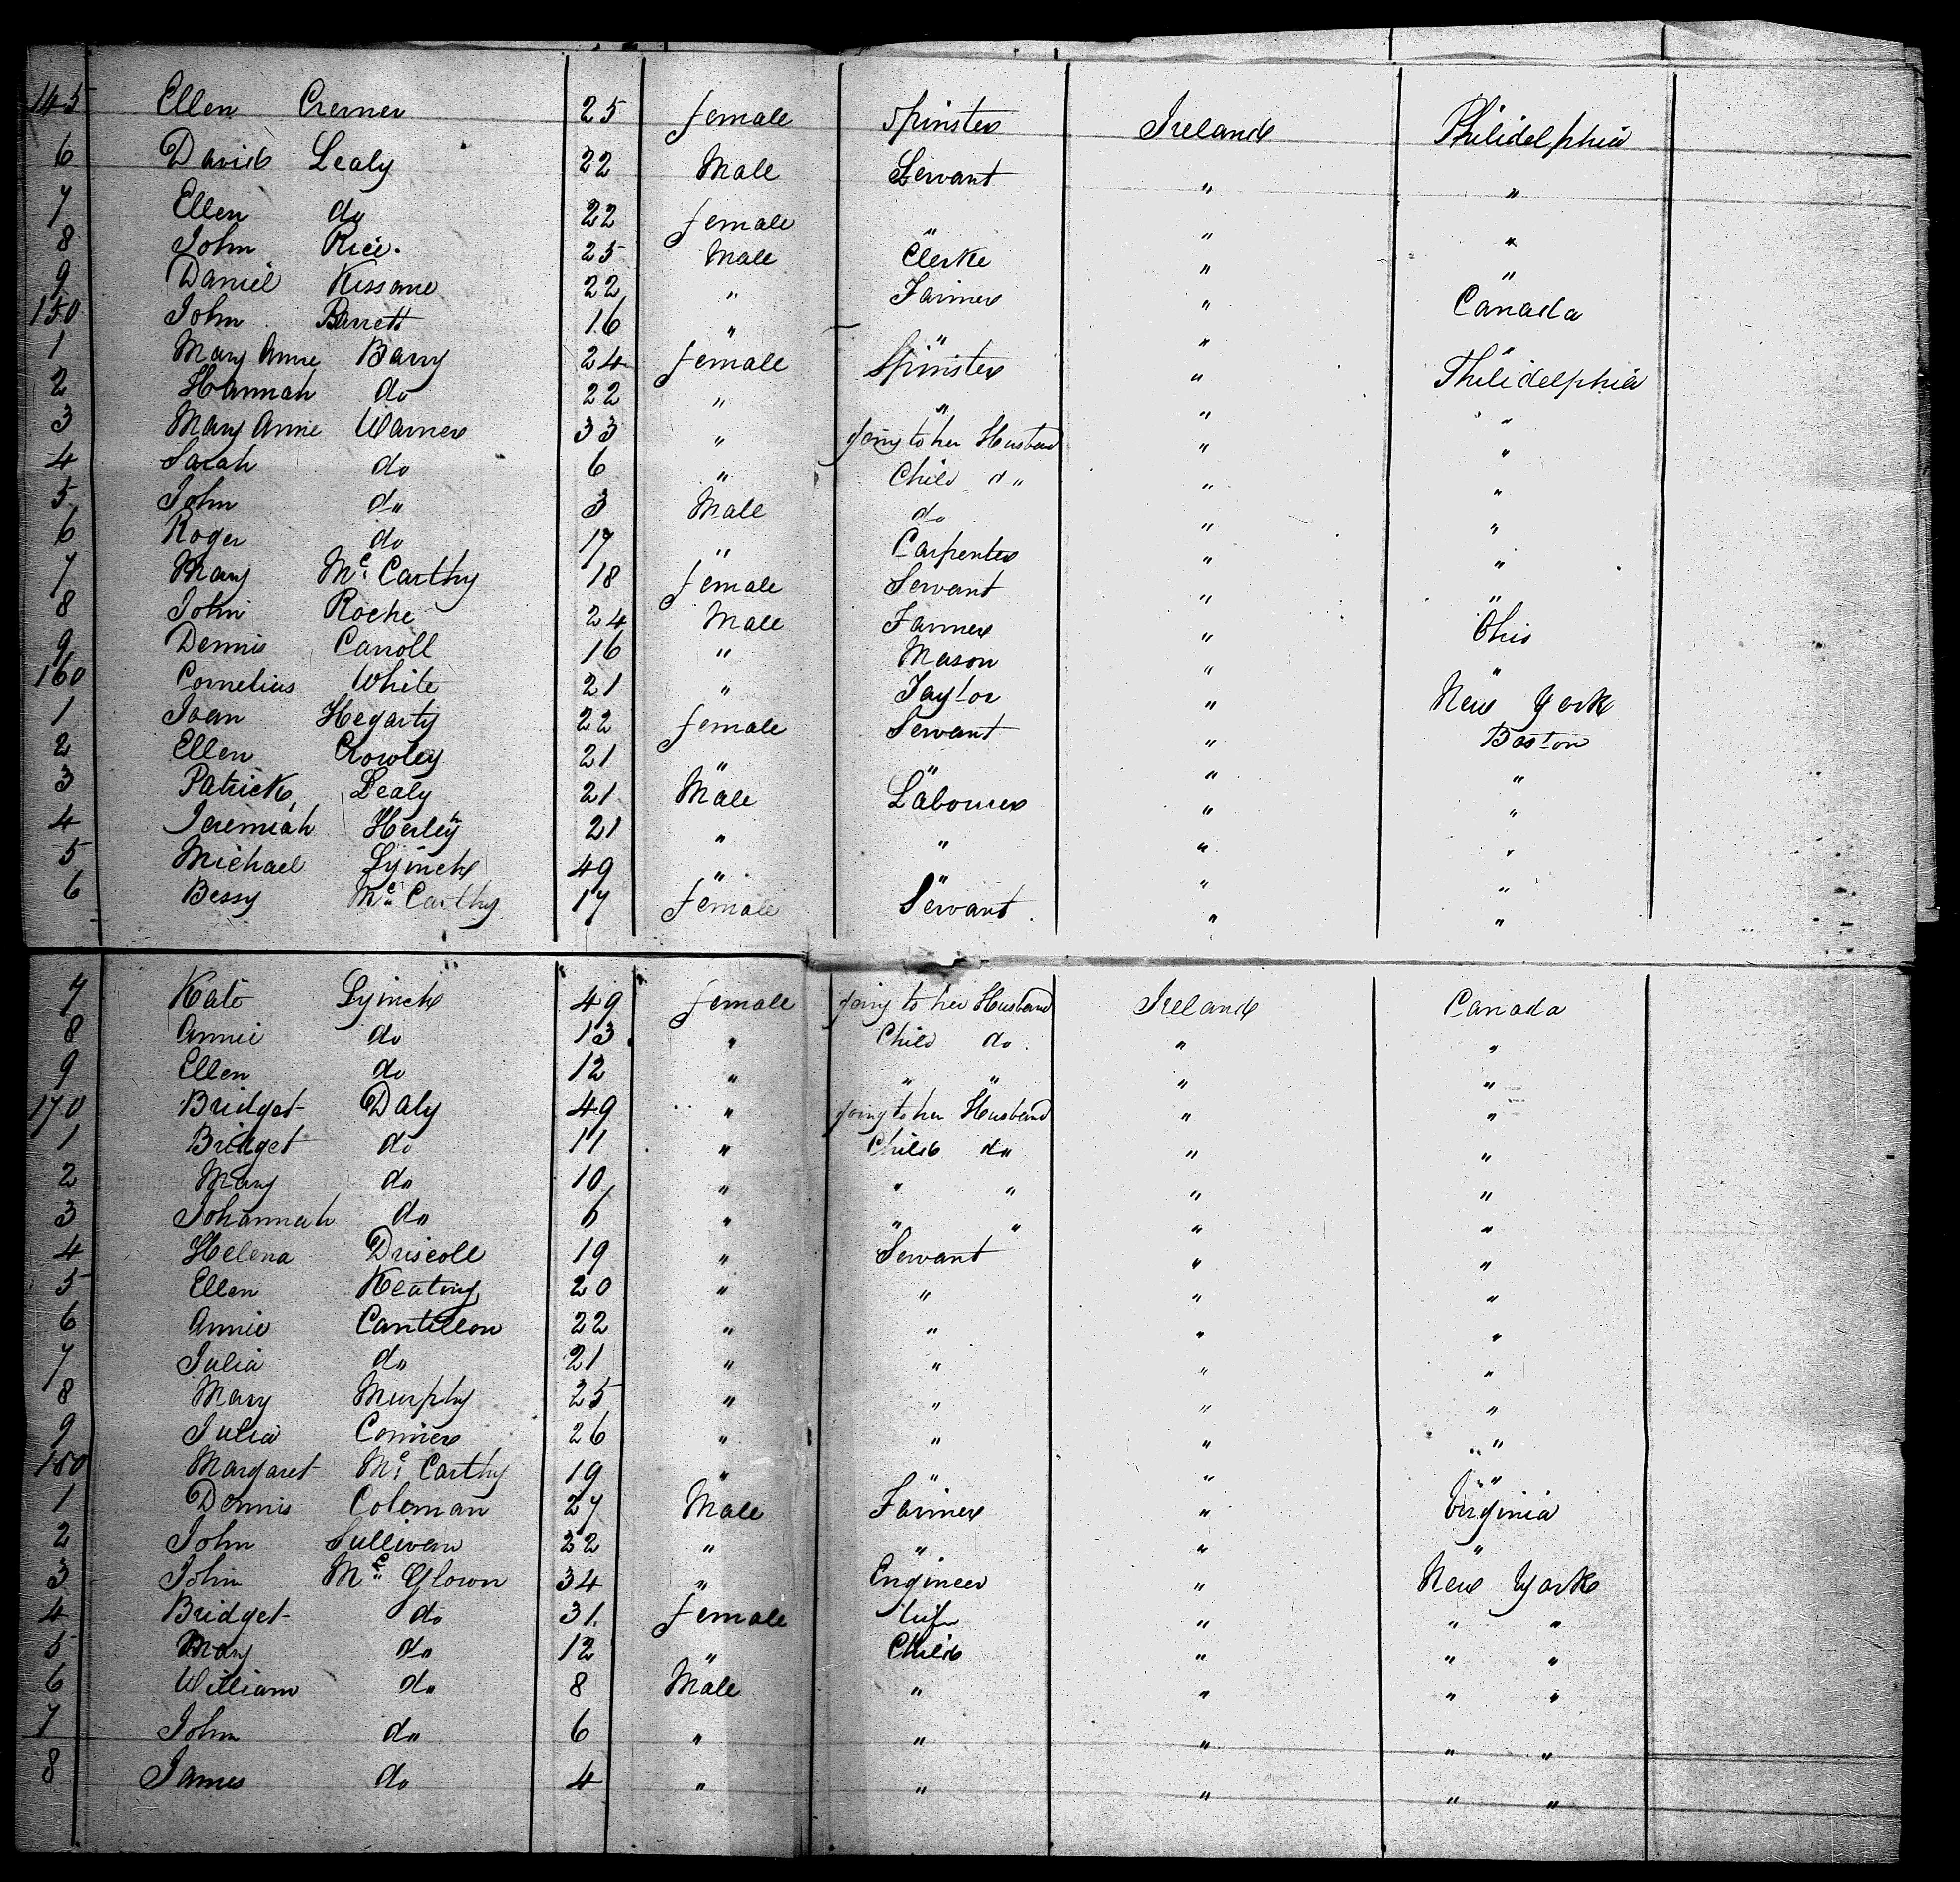 145 Ellen Cremer 25 female Spinster Ireland Philidelphia
6 David Lealy 22 Male Servant " "
7 Ellen do 22 female " " "
8 John Rice. 25 Male Clerke " "
9 Daniel Kissane 22 " Farmer " Canada
150 John Barrett 16 " " " "
1 Mary Anne Barry 24 female Spinster " Philidelphia
2 Hannah do 22 " " " "
3 Mary Anne Warner 33 " going to her Husband " "
4 Sarah do 6 " Child d " " "
5 John do 3 Male do " "
6 Roger do 17 " Carpenter " "
7 Mary Mc Carthy 18 female Servant " "
8 John Roche 24 Male Farmer " Ohio
9 Dennis Carroll 16 " Mason " "
160 Cornelius White 21 " Taylor " New York
1 Joan Hegarty 22 female Servant " Boston
2 Ellen Crowley 21 " " " "
3 Patrick Lealy 21 Male Labourer " "
4 Jeremiah Herley 21 " " " "
5 Michael Lynch 49 " " " "
6 Bessy Mc Carthy 17 female Servant " "
7 Kate Lynch 49 female going to her Husband Ireland Canada
8 Annie do 13 " Child do " "
9 Ellen do 12 " " " " "
170 Bridget Daly 49 " going to her Husband " "
1 Bridget do 11 " Child do " "
2 Mary do 10 " " " " "
3 Johannah do 6 " " " " "
4 Helena Driscoll 19 " Servant " "
5 Ellen Keating 20 " " " "
6 Annie Cantillon 22 " " " "
7 Julia do 21 " " " "
8 Mary Murphy 25 " " " "
9 Julia Conner 26 " " " "
180 Margaret Mc Carthy 19 " " " "
1 Dennis Coleman 27 Male Farmer " Virginia
2 John Sullivan 32 " " " "
3 John Mc Glown 34 " Engineer " New York
4 Bridget do 31 female Wife " " "
5 Mary do 12 " Child " " "
6 William do 8 Male " " " "
7 John do 6 " " " " "
8 James do 4 " " " " "